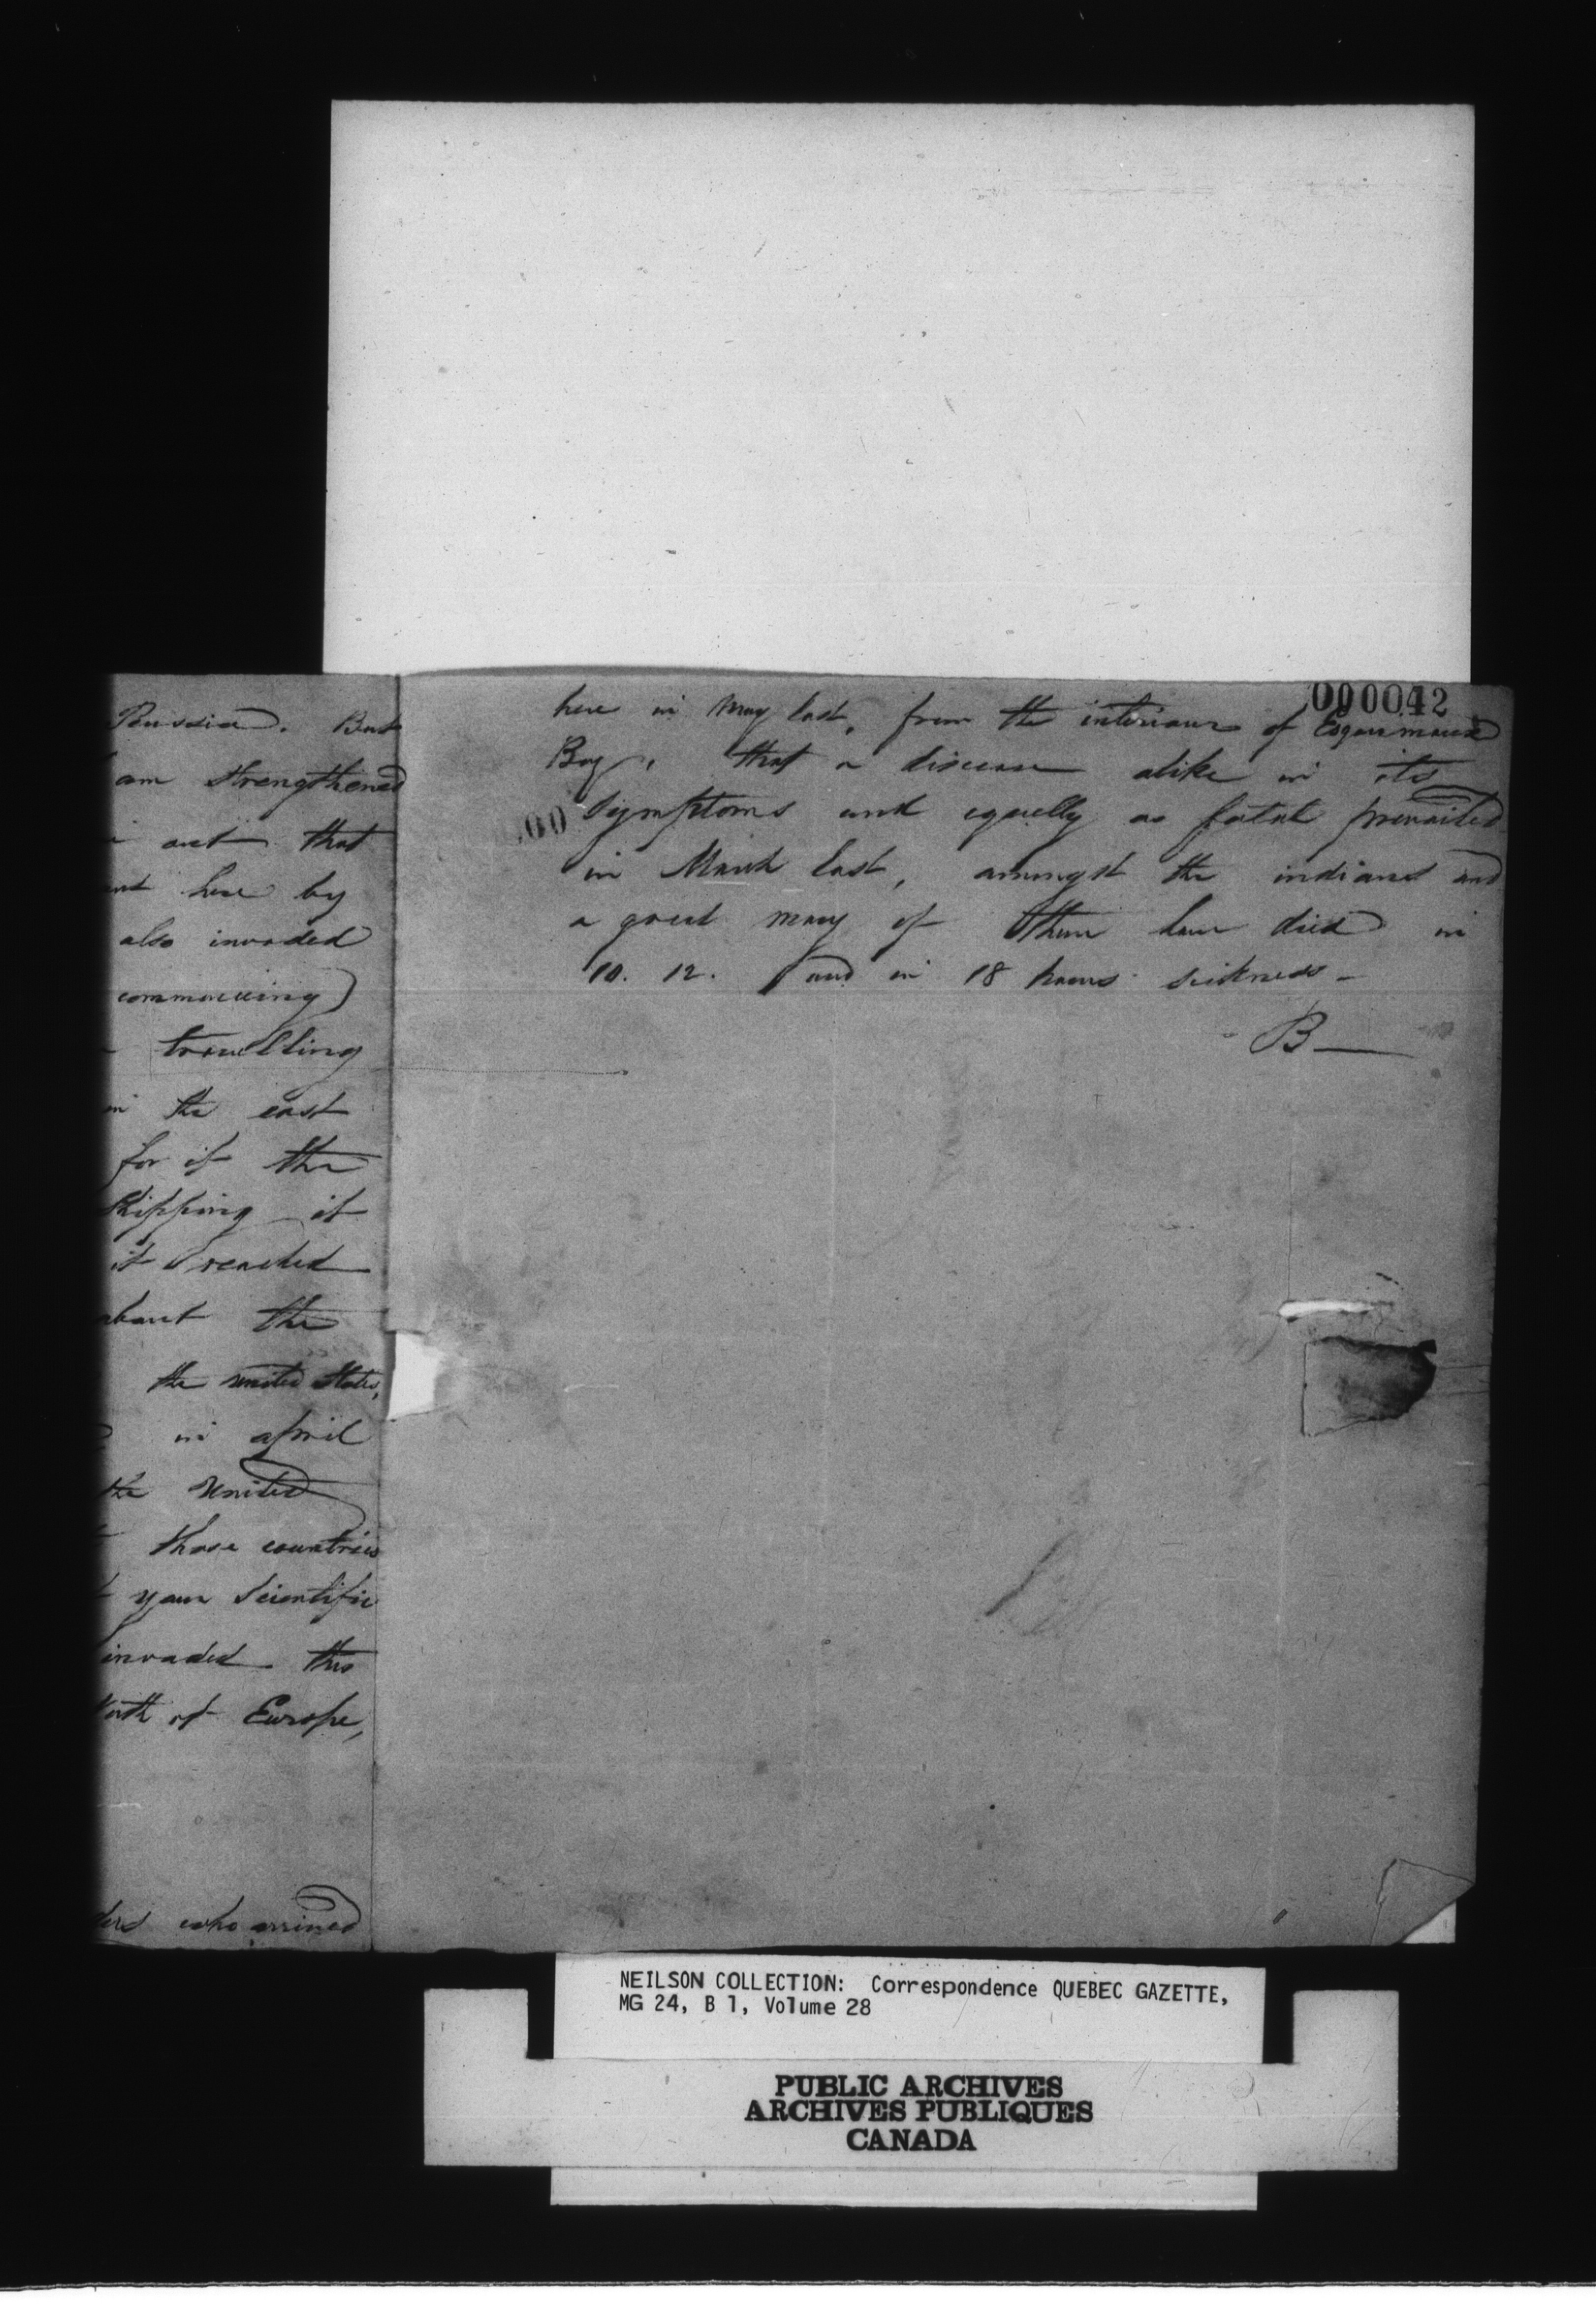 Russia. But
am strengthened
act that
here by
also invaded
commencing)
travelling
in the east
for if the
Shipping it
it reached
about the
the united States,
in april
the United
those countries
your Scientific
invaded this
North of Europe,
who arrived
000042
here in May last, from the interiour of Esquimaux
Bay, that a disease alike in its
symptoms and equally as fatal prevailed
in March last, amongst the indians and
a great many of them have died in
10. 12. and in 18 hours sickness -
B
NEILSON COLLECTION: Correspondence QUEBEC GAZETTE,
MG 24, B 1, Volume 28
PUBLIC ARCHIVES
ARCHIVES PUBLIQUES
CANADA